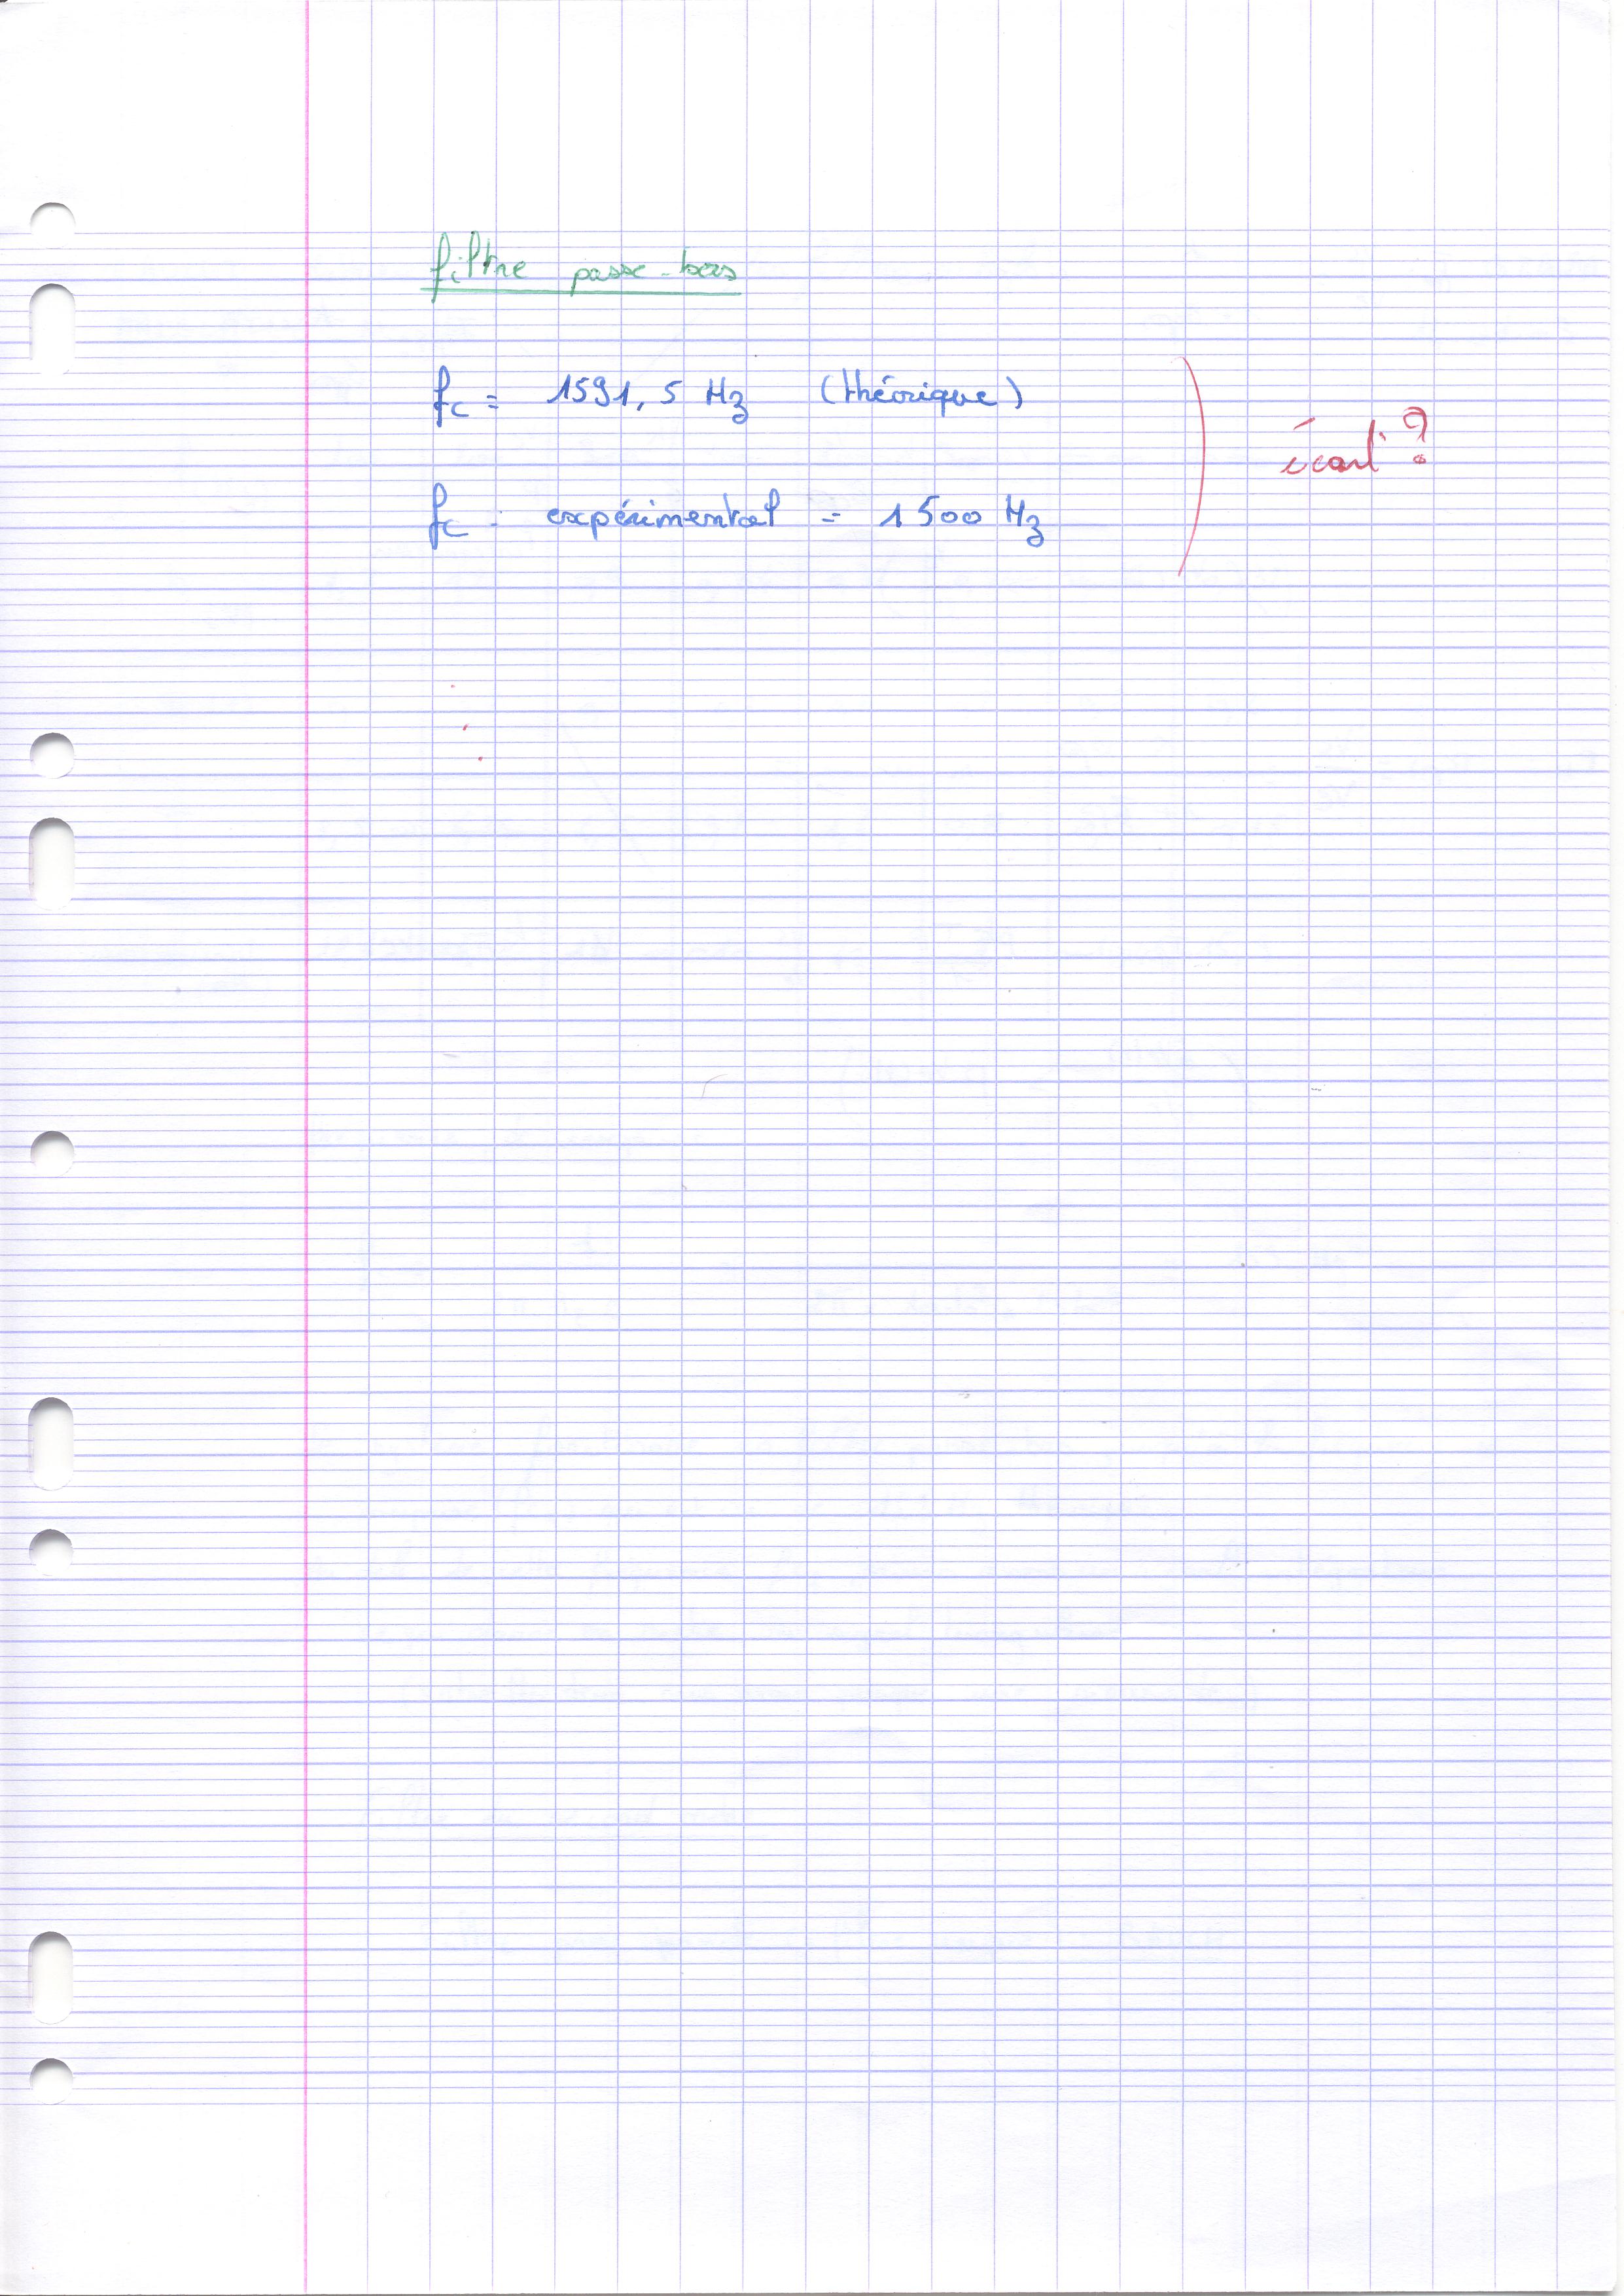 filtre passe-bas
fc = 1591,5 Hz (théorique)
écart ?
fc : expérimental = 1500 Hz